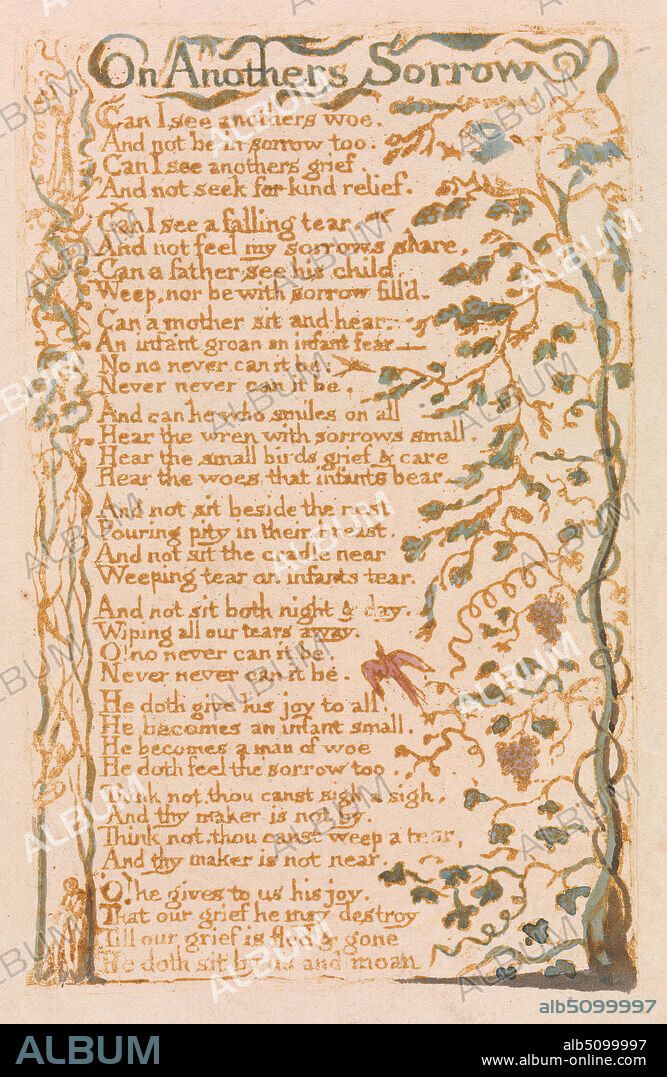 On Anothers Sorrow
Can I see anothers woe.
And not be in sorrow too.
Can I see anothers grief.
And not seek for kind relief.
Can I see a falling tear.
And not feel my sorrows share,
Can a father see his child,
Weep, nor be with sorrow fill'd.
Can a mother sit and hear.
An infant groan an infant fear
No no never can it be.
Never never can it be.
And can he who smiles on all
Hear the wren with sorrows small.
Hear the small birds grief & care
Hear the woes that infants bear
And not sit beside the nest
Pouring pity in their breast.
And not sit the cradle near
Weeping tear on infants tear.
And not sit both night & day.
Wiping all our tears away.
O! no never can it be.
Never never can it be.
He doth give his joy to all.
He becomes an infant small.
He becomes a man of woe
He doth feel the sorrow too.
Think not. thou canst sigh a sigh.
And thy maker is not by.
Think not. thou canst weep a tear,
And thy maker is not near.
O! he gives to us his joy.
That our grief he may destroy
Till our grief is fled & gone
He doth sit by us and moan
ALBUM
alb5099997
ALBUM
alb5099997
www.album-online.com